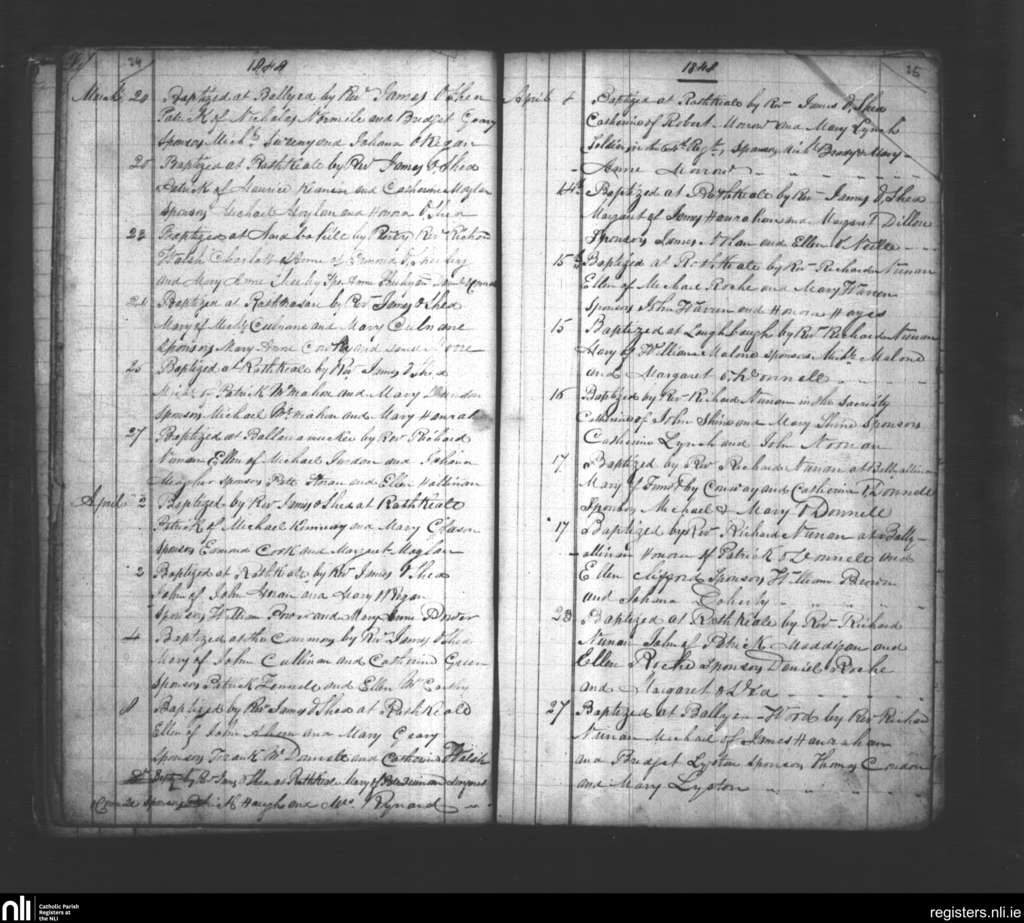 24
1848
March 20 Baptized at Ballyea by Revd James O Shea
Patrick of Nicholas Normile and Bridget Geary
Sponsors Mich and Johana O Regan
20 Baptized at Rathkeale by Revd James O Shea
Patrick of Maurice and Catherine Moylan
Sponsors Michael Moylan and Honora O Shea
23 Baptized at by Revd Richard
Anne of
and Mary Anne Sheehy Anne
26 Baptized at by Revd James O Shea
Mary of Michl Culnane and Mary Culnane
Sponsors Mary Anne and
25 Baptized at Rathkeale by Revd James O Shea
Patrick McMahon and Mary
Sponsors Michael McMahon and Mary Hanrah
27 Baptized at by Revd Richard
Nunan Ellen of Michael Jordan and Johana
Meagher Sponsors Patt and Ellen Hallinan
April 2 Baptized by Revd James O Shea at Rathkeale
Patrick of Michael and Mary Gleason
Sponsors Edmond Cook and Margaret Moylan
2 Baptized at Rathkeale by Revd James O Shea
John of John and Mary
Sponsors William Power and Mary Anne Power
4 Baptized at the Commons by Revd James O Shea
Mary of John Cullinan and Catherine Green
Sponsors Patrick and Ellen McCarthy
8 Baptized by Revd James O Shea at Rathkeale
Ellen of John Ahern and Mary Geary
Sponsors Frank McDonnell and Catherine Walsh
by Revd James O Shea at Rathkeale Mary of
Sponsors Haugh and Mrs
25
1848
April Baptized at Rathkeale by Revd James O Shea
Catherine of Robert Morrow and Mary Lynch
Soldier in the Regt, Sponsors Michl Brady & Mary
Anne Morrow
14th Baptized at Rathkeale by Revd James O Shea
Margaret of James Hanrahan and Margaret Dillon
Sponsors James and Ellen O Neille
15th Baptized at Rathkeale by Revd Richard Nunan
Ellen of Michael Roche and Mary Warren
Sponsors John Warren and Honora Hayes
15 Baptized at by Revd Richard Nunan
Mary of William Malone Sponsors Michl Malone
and Margaret O Donnell
16 Baptized by Revd Richard Nunan in the Sacristy
Catherine of John Shine and Mary Shine Sponsors
Catherine Lynch and John Noonan
17 Baptized by Revd Richard Nunan at Ballyallinan
Mary of Conway and Catherine O Donnell
Sponsors Michael & Mary O Donnell
17 Baptized by Revd Richard Nunan at Bally-
-allinan Honora of Patrick O Donnell and
Ellen Clifford Sponsors William Brown
and Johana Doherty
23 Baptized at Rathkeale by Revd Richard
Nunan John of Patrick Maddigan and
Ellen Roche Sponsors Daniel Roche
and Margaret O Dea
27 Baptized at by Revd Richard
Nunan Michael of James Hanrahan
and Bridget Lyston Sponsors Thomas Condon
and Mary Lyston
nli
Catholic Parish
Registers at
the NLI
registers.nli.ie